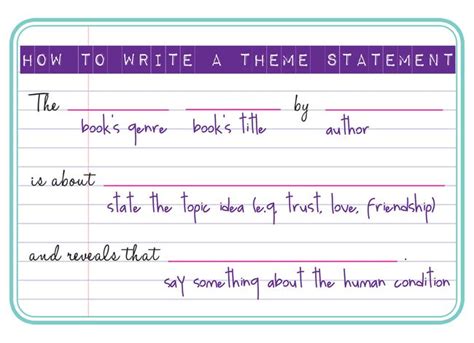 HOW TO WRITE A THEME STATEMENT
The ____________ ____________ by ____________
book's genre book's title author
is about ________________________________
state the topic idea (e.g. trust, love, friendship)
and reveals that ________________________.
say something about the human condition